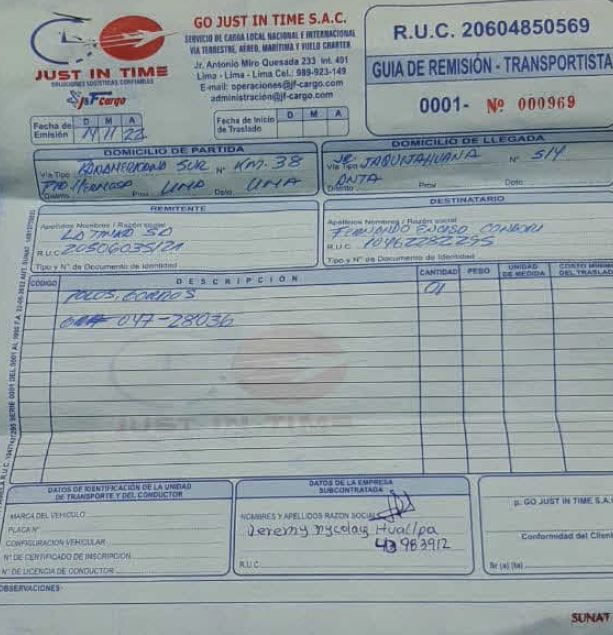 JUST IN TIME
SOLUCIONES LOGISTICAS CONFIABLES
jsFcargo
GO JUST IN TIME S.A.C.
SERVICIO DE CARGA LOCAL NACIONAL E INTERNACIONAL
VIA TERRESTRE, AÉREO, MARÍTIMA Y VUELO CHARTER
Jr. Antonio Miro Quesada 233 Int. 401
Lima - Lima - Lima Cel.: 989-923-149
E-mail: operaciones@jf-cargo.com
administración@jf-cargo.com
R.U.C. 20604850569
GUIA DE REMISIÓN - TRANSPORTISTA
0001- Nº 000969
Fecha de Emisión D M A
14/11/22
Fecha de Inicio de Traslado D M A
DOMICILIO DE PARTIDA
Vía Tipo PANAMERICANA SUR Nº KM. 38
Distrito Prov. LIMA Dpto. LIMA
DOMICILIO DE LLEGADA
Vía Tipo JR JAQUIJAHUANA Nº 514
Distrito ANTA Prov Dpto
REMITENTE
Apellidos Nombres / Razón social
R.U.C. 20506035121
Tipo y Nº de Documento de Identidad
DESTINATARIO
Apellidos Nombres / Razón social
FERNANDO ENCISO CONDORI
R.U.C. 10462282295
Tipo y Nº de Documento de Identidad
CÓDIGO DESCRIPCIÓN CANTIDAD PESO UNIDAD DE MEDIDA COSTO MÍNIMO DEL TRASLADO
POLOS, GORROS 01
047-28036
JUST IN TIME
DATOS DE IDENTIFICACIÓN DE LA UNIDAD DE TRANSPORTE Y DEL CONDUCTOR
MARCA DEL VEHICULO
PLACA Nº
CONFIGURACIÓN VEHICULAR
Nº DE CERTIFICADO DE INSCRIPCIÓN
Nº DE LICENCIA DE CONDUCTOR
DATOS DE LA EMPRESA SUBCONTRATADA
NOMBRES Y APELLIDOS RAZÓN SOCIAL
Jeremy nycolas Huallpa
43983912
R.U.C.
p. GO JUST IN TIME S.A.C
Conformidad del Client
Sr (a) (ta)
OBSERVACIONES:
SUNAT